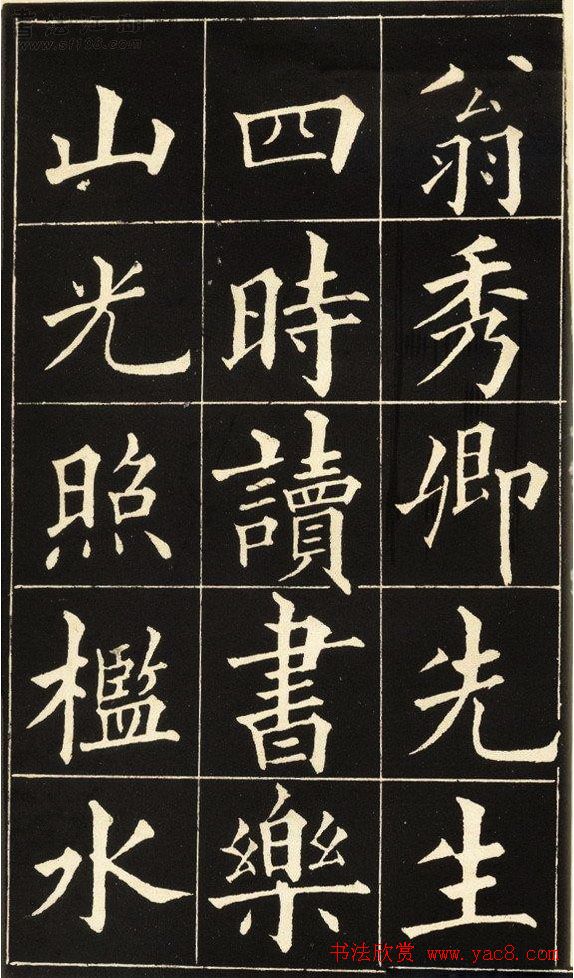 翁秀卿先生
四時讀書樂
山光照檻水
书法欣赏 www.yac8.com